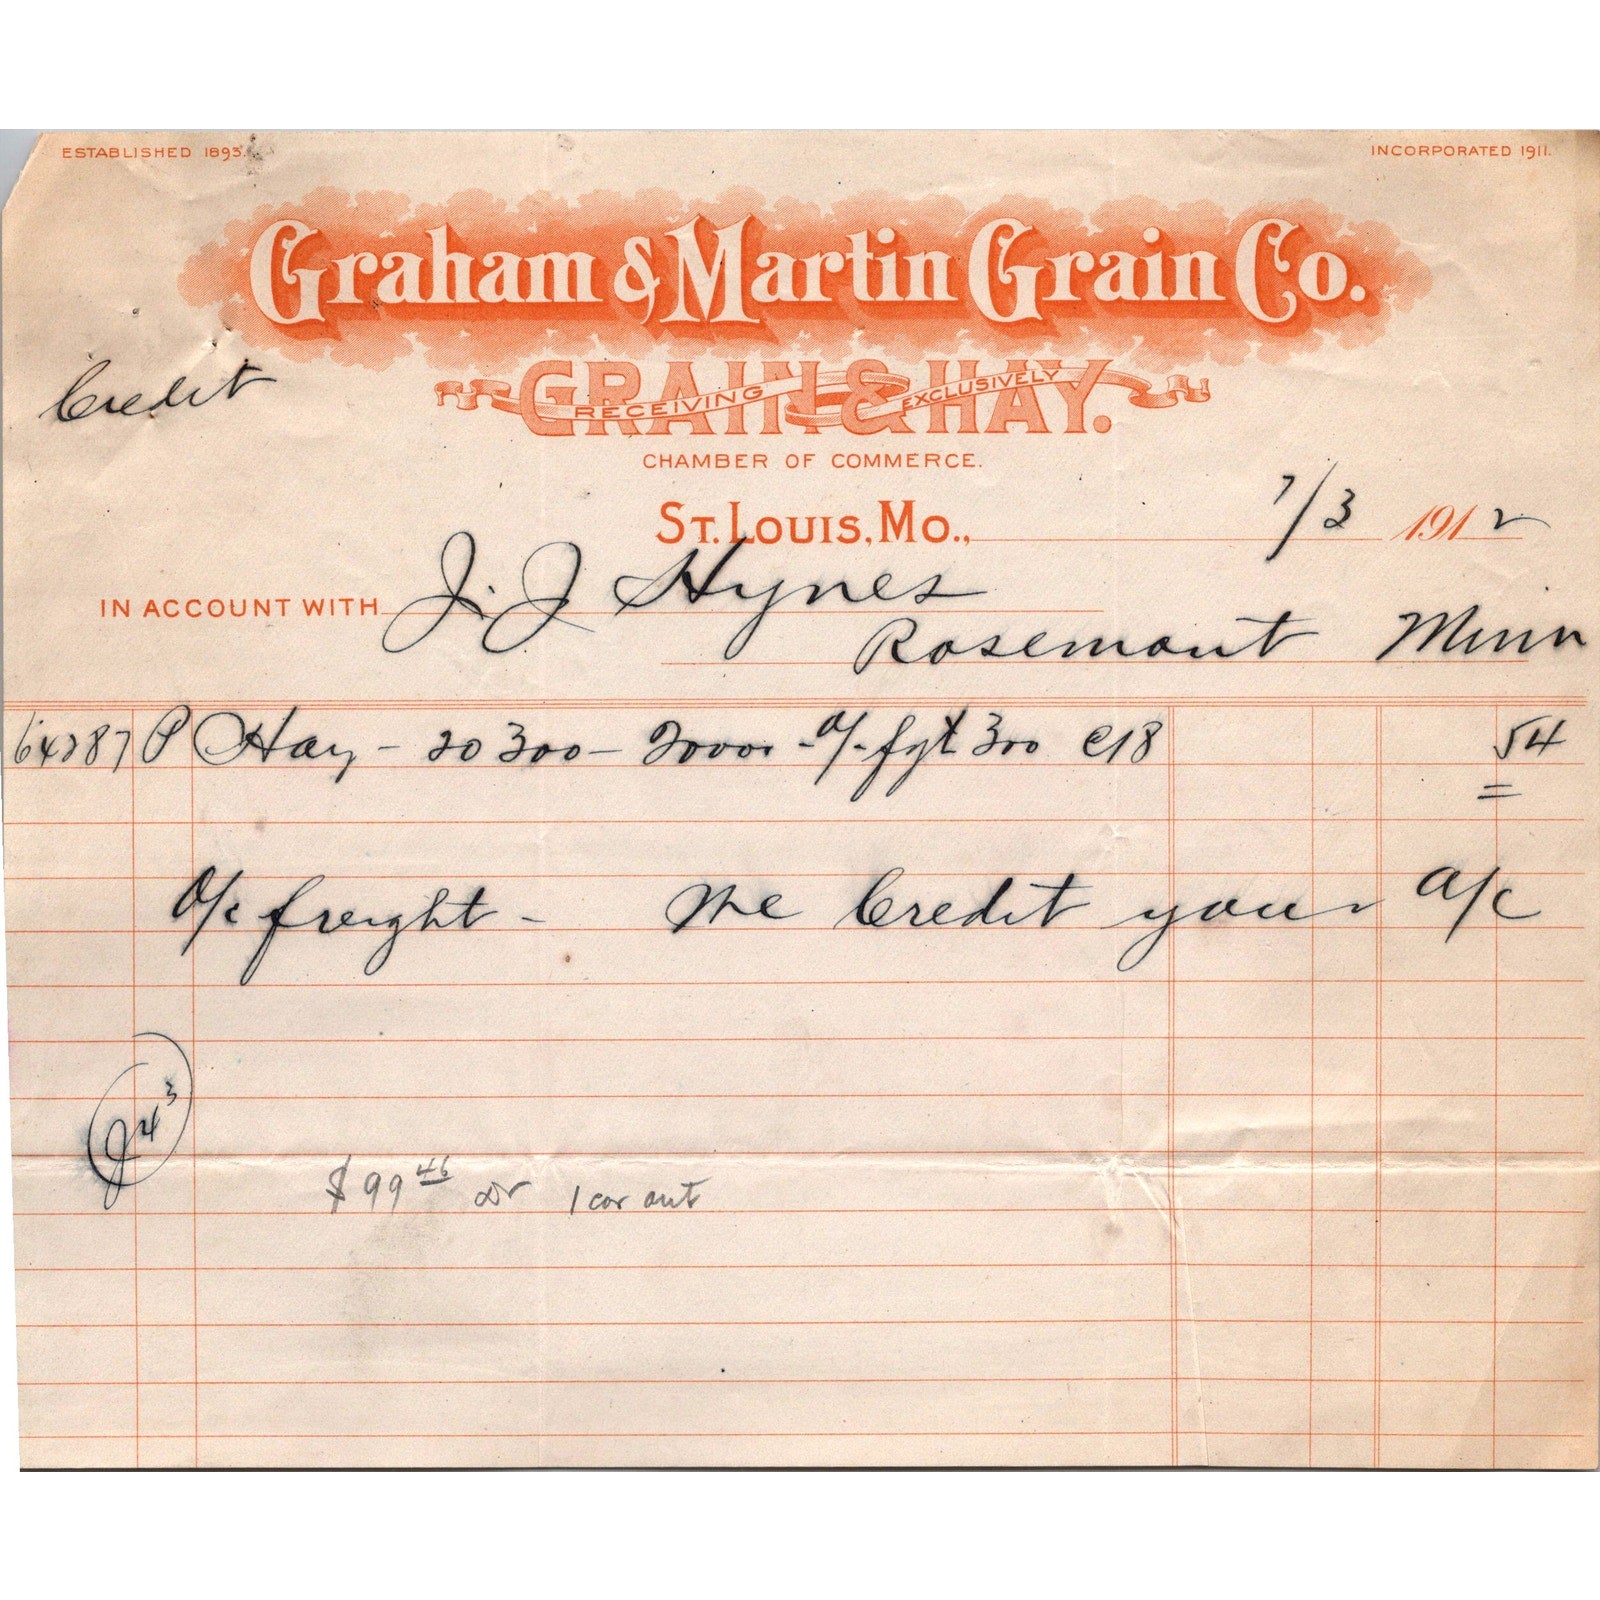 ESTABLISHED 1893. INCORPORATED 1911.
Graham & Martin Grain Co.
RECEIVING GRAIN & HAY. EXCLUSIVELY
Credit
CHAMBER OF COMMERCE.
ST. LOUIS, MO., 7/3 1912
IN ACCOUNT WITH J. J Hynes
Rosemount Minn
64287 P Hay - 20 300 - 20000 - o/- fgt 300 @18 54
a/c freight - We Credit your a/c
$99 46 Dr 1 car out